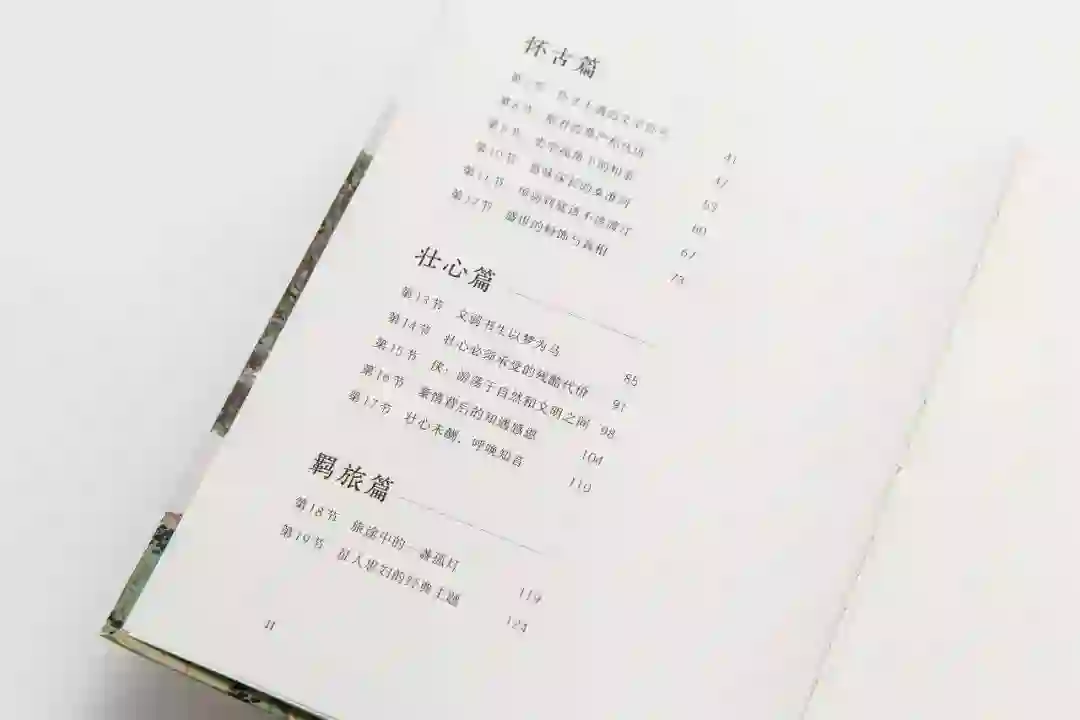 怀古篇
第7节 41
第8节 47
第9节 史学视野下的 53
第10节 意味深长的秦淮河 60
第11节 67
第12节 盛世的粉饰与真相 73
壮心篇
第13节 文弱书生以梦为马 85
第14节 壮心必须承受的残酷代价 91
第15节 侠，游荡于自然和文明之间 98
第16节 豪情背后的知遇感恩 104
第17节 壮心未酬，呼唤知音 110
羁旅篇
第18节 旅途中的一盏孤灯 119
第19节 征人思妇的经典主题 124
II